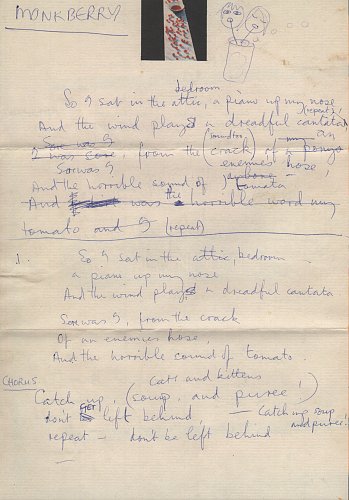 MONKBERRY
bedroom
So I sat in the attic, a piano up my nose
(repeat 2)
And the wind played a dreadful cantata
Sore was I (soundtrox) my an
I was sore, from the crack of a
Sorwas I enemies hose
And the horrible sound of tomata
And was the horrible word my
tomato and I (repeat)
1. So I sat in the attic, bedroom
a piano up my nose
And the wind played a dreadful cantata
Sore was I, from the crack
Of an enemies hose,
And the horrible sound of tomato.
CHORUS
Cats and kittens
Catch up, (soup, and puree!)
don't GET left behind, — Catch up soup and puree!
repeat — don't be left behind